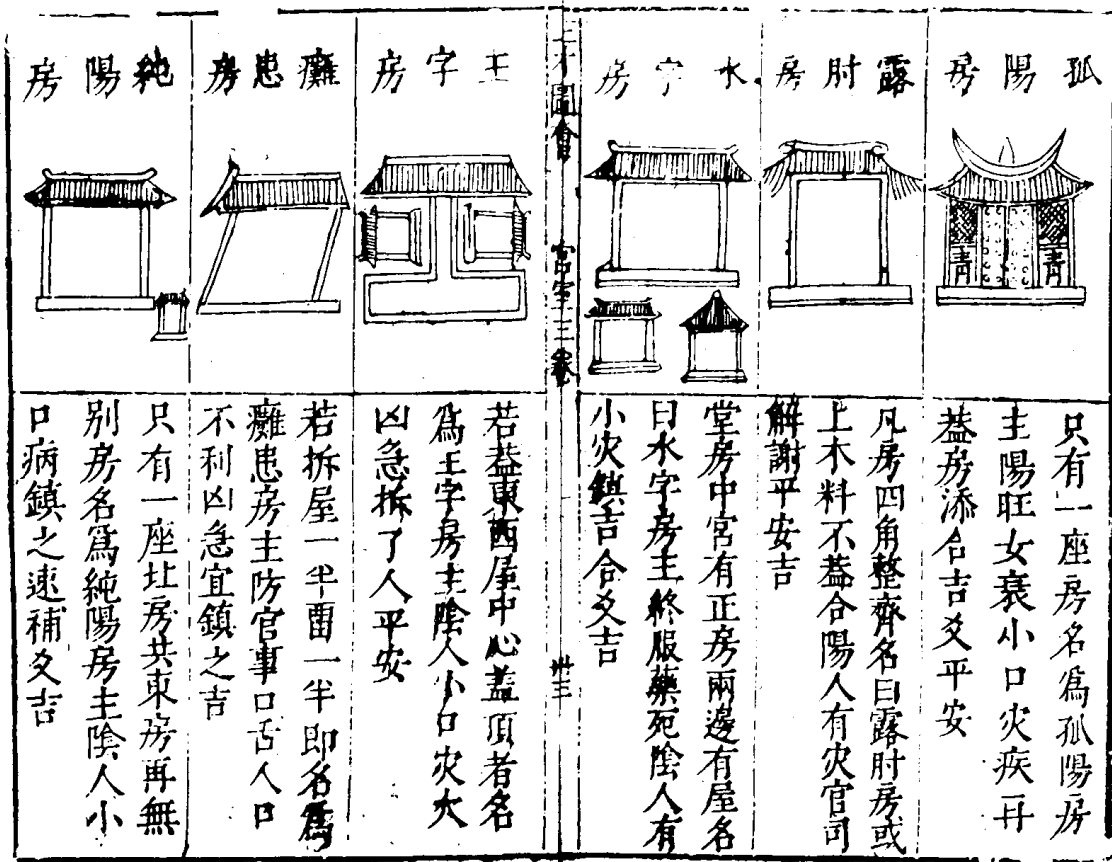 孤陽房
青 青
只有一座房名爲孤陽房
主陽旺女衰小口灾疾再
葢房添合吉爻平安
露肘房
凡房四角整齊名曰露肘房或
上木料不葢合陽人有灾官司
解謝平安吉
水字房
堂房中宮有正房兩邊有屋名
曰水字房主終服藥死陰人有
小灾鎮吉合爻吉
三才圖會
宮室三卷
卅三
王字房
若葢東西屋中心葢頂者名
爲王字房主陰人小口灾大
凶急拆了人平安
癱患房
若拆屋一半畱一半即名爲
癱患房主防官事口舌人口
不利凶急宜鎮之吉
純陽房
只有一座北房共東房再無
别房名爲純陽房主陰人小
口病鎮之速補爻吉